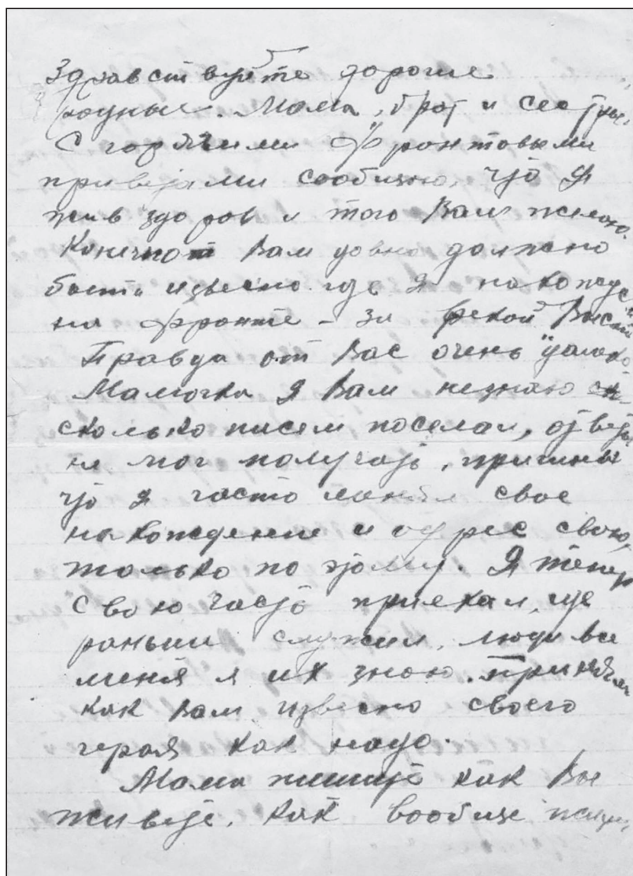 Здравствуйте дорогие
родные. Мама, брат и сестры.
С горячими фронтовыми
приветами сообщаю, что я
жив здоров и того Вам желаю.
Конечно Вам давно должно
быть извесно где я нахожус
на фронте – за рекой Вислой
Правда от Вас очень далеко
Мамочка я Вам незнаю
сколько писем поселал, ответа
не мог получать, причина
что я часто менял свое
нахождение и адрес свой
только по этому. Я тепер
свою часть приехал, где
раньше служил, люди все
меня и их знаю. Приняли
как Вам извесно своего
героя как надо.
Мама пишите как Вы
живете, как вообще